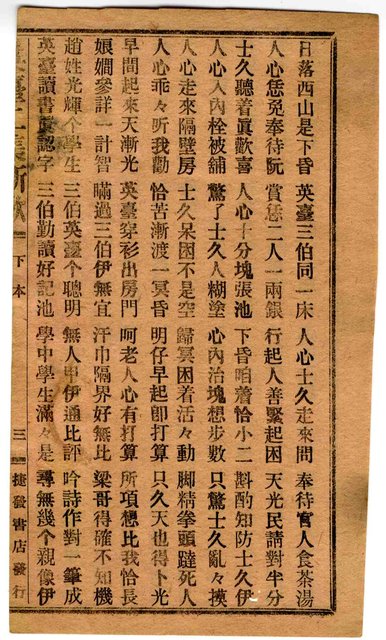 日落西山是下昏 英臺三伯同一床 人心士久走來問 奉待官人食茶湯
人心恁免奉待阮 賞恁二人一兩銀 行起人善緊起困 天光民請對半分
士久聽着眞歡喜 人心十分塊張池 下昏咱着恰小二 斟酌知防士久伊
人心入內栓被舖 驚了士久人糊塗 心內治塊想步數 只驚士久亂々摸
人心走來隔壁房 士久呆困不是空 歸冥困着活々動 脚精拳頭躂死人
人心乖々所我勸 恰苦漸渡一冥昏 明仔早起卽打算 只久天也得卜光
早間起來天漸光 英臺穿衫出房門 呵老人心有打算 所項想比我恰長
娘嫺參詳一計智 瞞過三伯伊無宜 汗巾隔界好無比 梁哥得確不知機
趙姓光輝个學生 三伯英臺个聰明 無人甲伊通比評 吟詩作對一筆成
英臺讀書眞認字 三伯勤讀好記池 學中學生滿々是 尋無幾个親像伊
下本 三 捷發書店發行